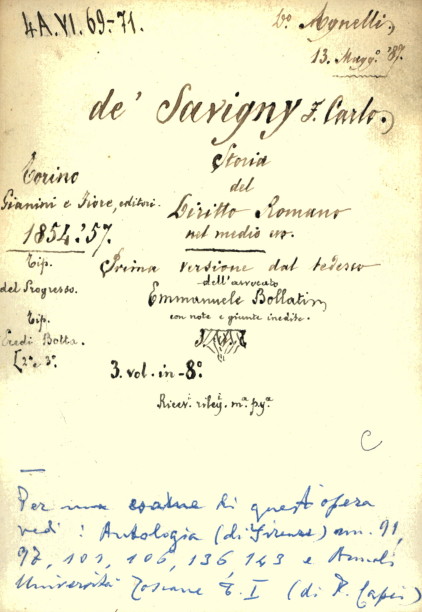 4A.VI.69-71.
Do. Agnelli.
13. Maggo. '87.
de' Savigny F. Carlo.
Storia
del
Diritto Romano
nel medio evo.
Torino
Gianini e Fiore, editori.
1854-'57.
Tip.
del Progresso.
Tip.
Eredi Botta.
[2o e 3o.
Prima versione dal tedesco
dell'avvocato
Emmanuele Bollati
con note e giunte inedite.
3. vol. in-8o.
C
Per una esame di quest'opera
vedi: Antologia (di Firenze) nn. 91,
97, 101, 106, 136, 143 e Annali
Università Toscane t. I (di P. Capei)